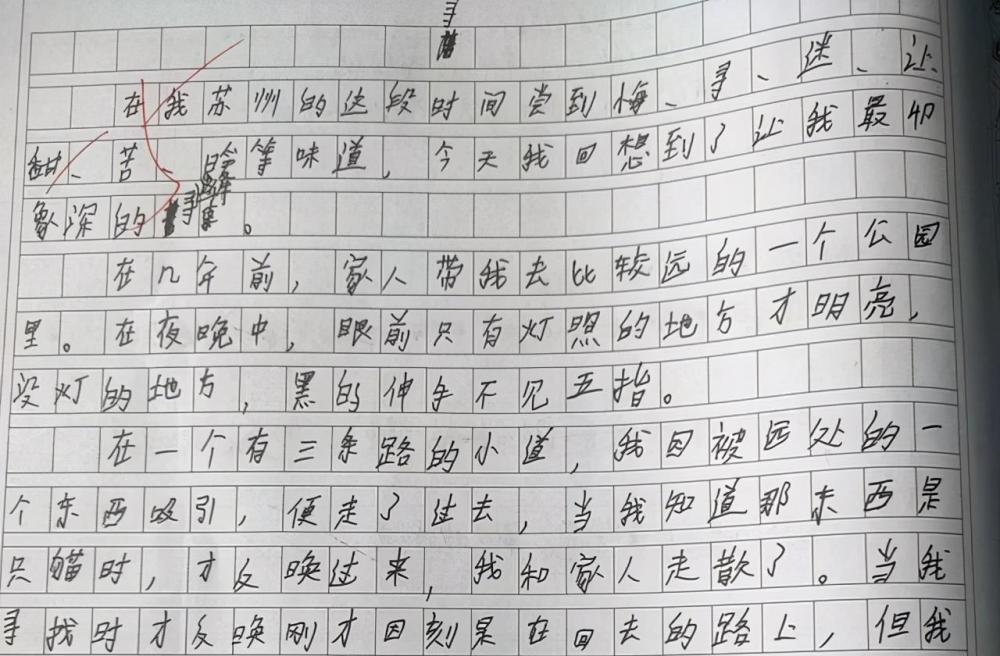 寻
在我苏州的这段时间尝到悔、寻、迷、让、
甜、苦、等味道，今天我回想到了让我最印
象深的寻。
在几年前，家人带我去比较远的一个公园
里。在夜晚中，眼前只有灯照的地方才明亮，
没灯的地方，黑的伸手不见五指。
在一个有三条路的小道，我因被远处的一
个东西吸引，便走了过去，当我知道那东西是
只猫时，才反唤过来，我和家人走散了。当我
寻找时才反唤刚才因刻是在回去的路上，但我